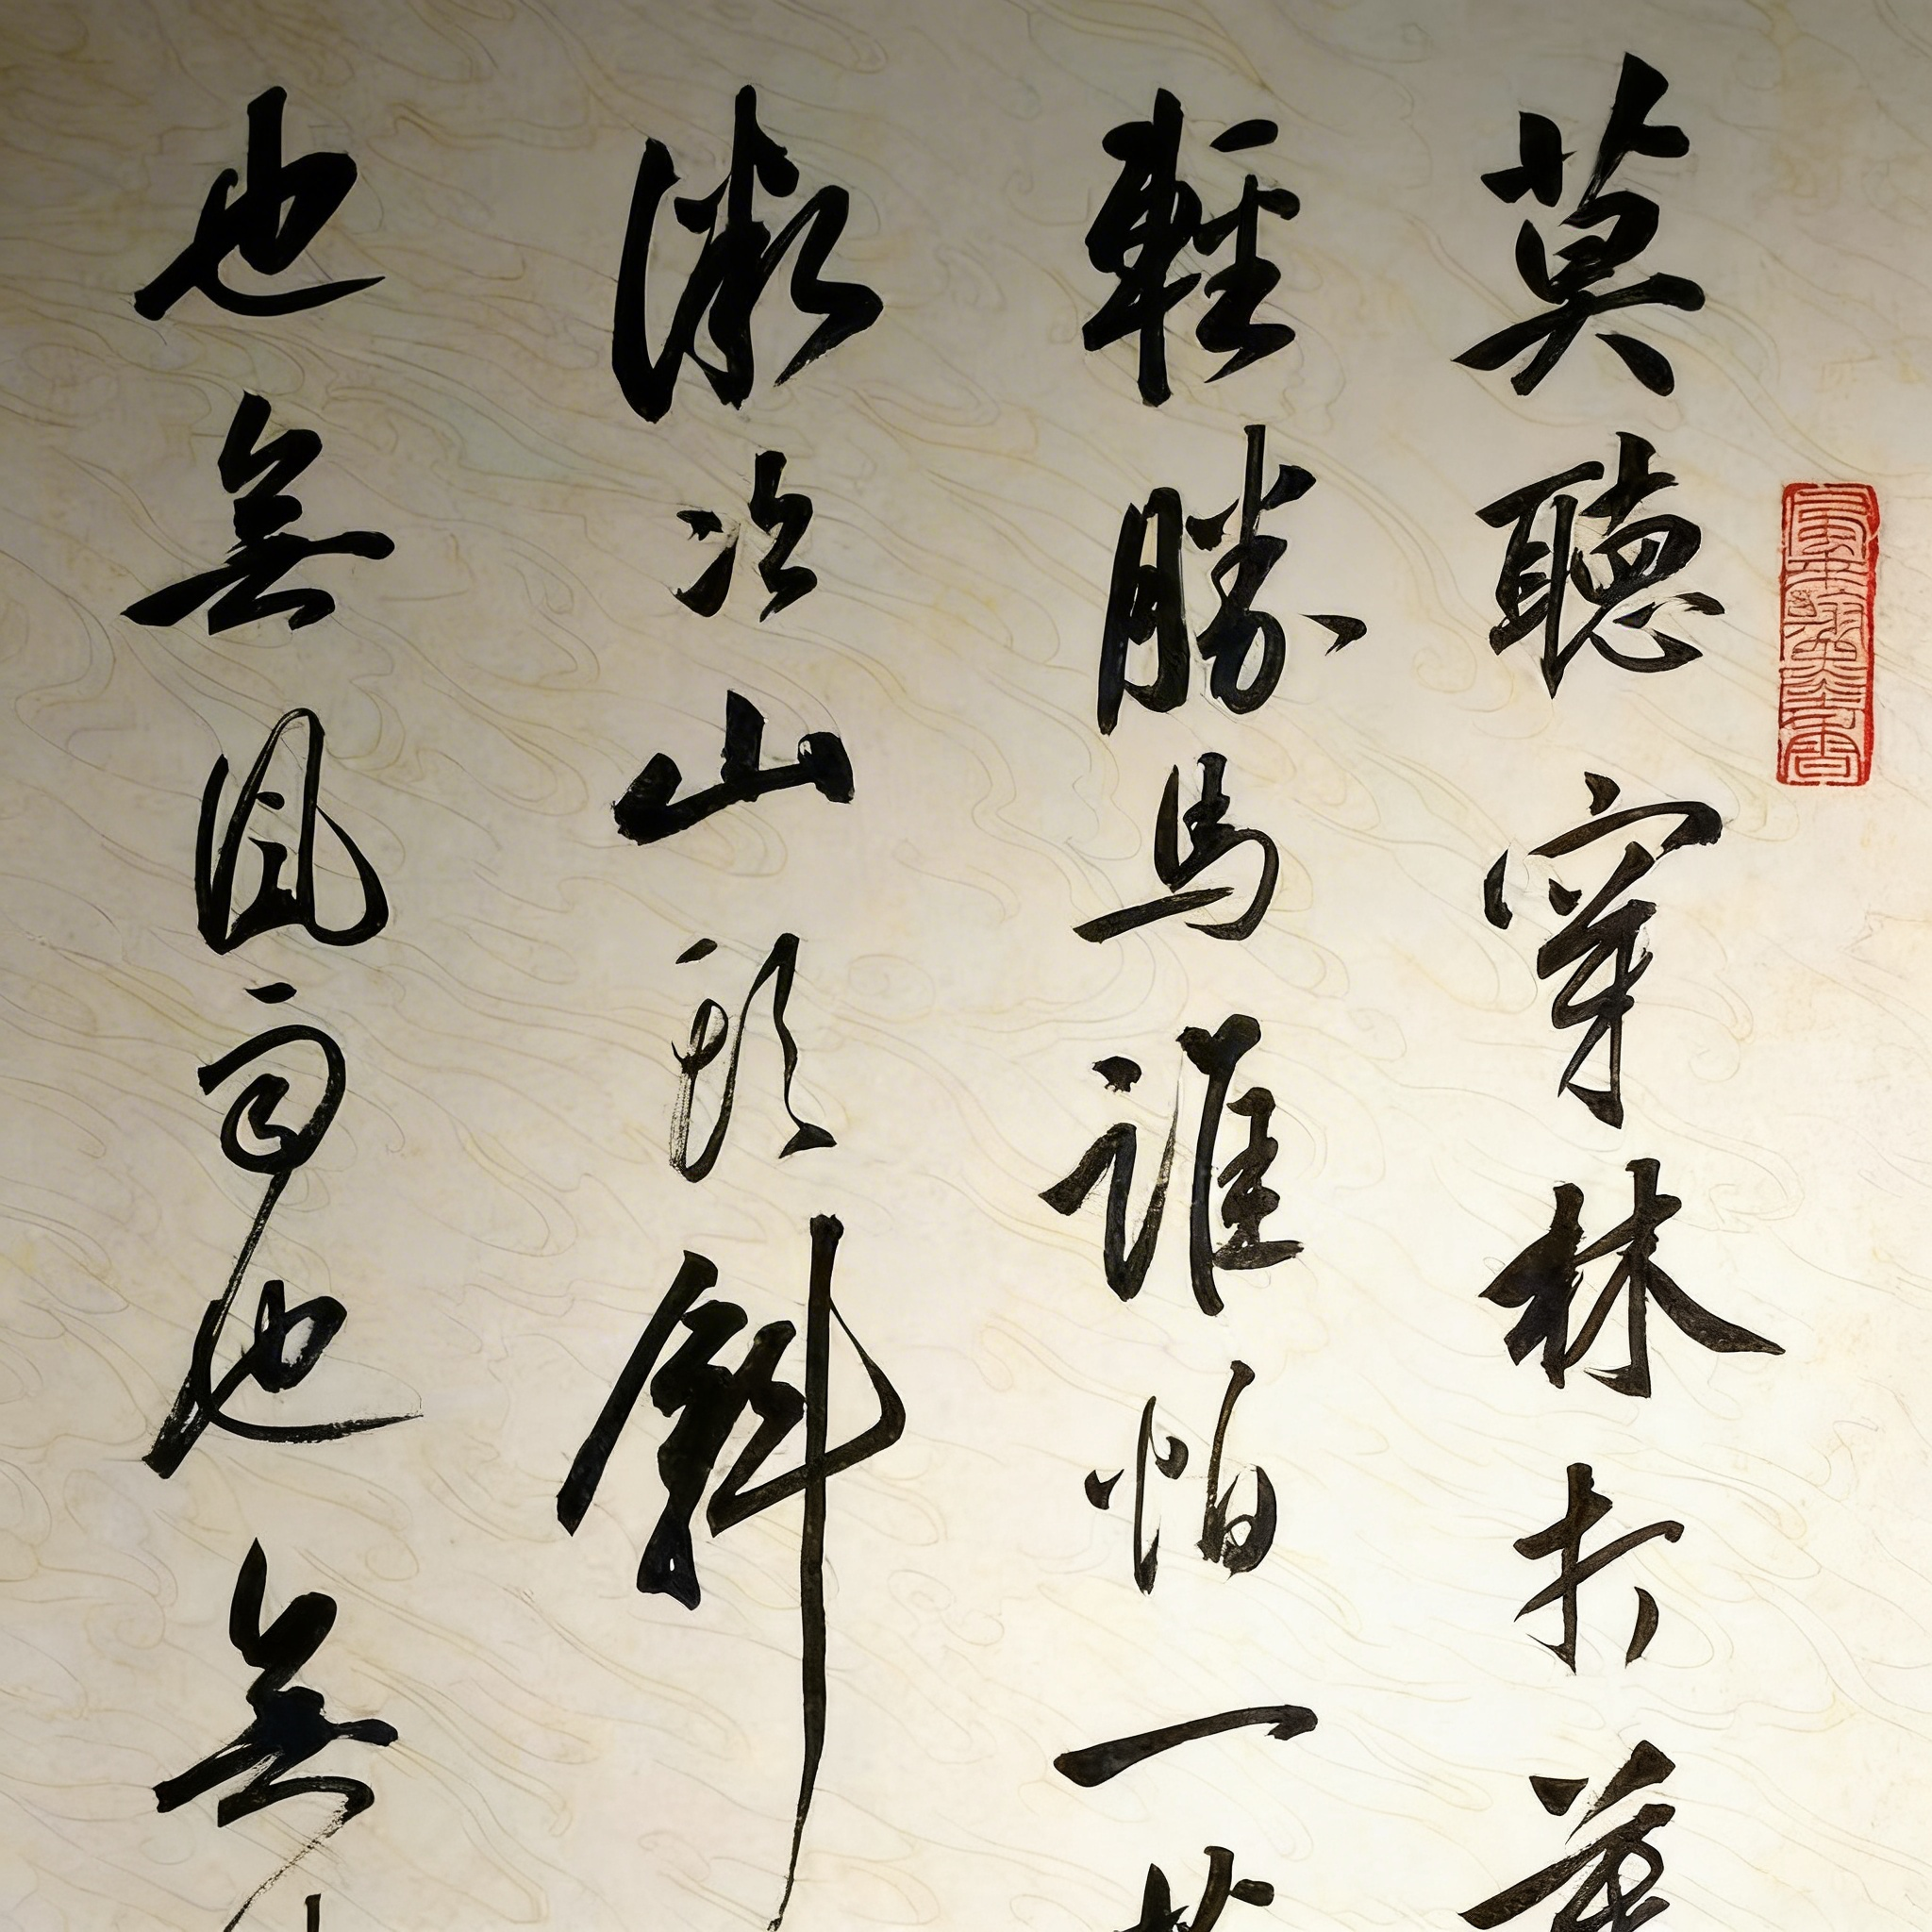 莫聽穿林打葉
輕勝馬誰怕一蓑
微冷山頭斜
也無風雨也無